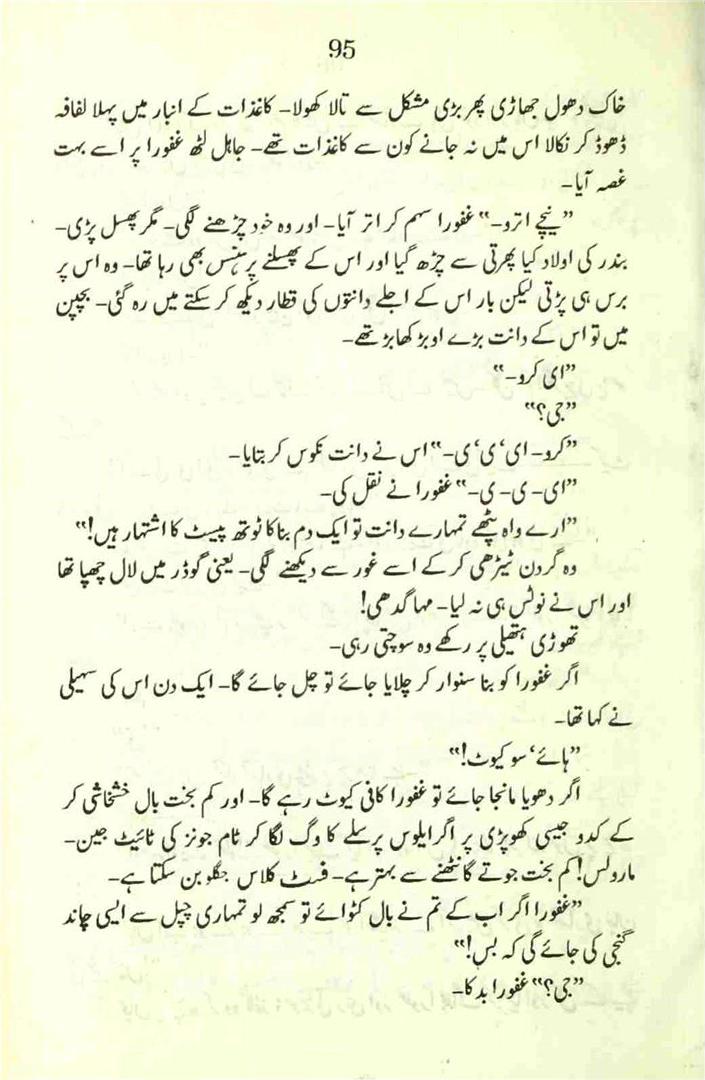 95
خاک دھول جھاڑی پھر بڑی مشکل سے تالا کھولا۔ کاغذات کے انبار میں پہلا لفافہ
ڈھوڈ کر نکالا اس میں نہ جانے کون سے کاغذات تھے۔ جاہل لٹھ غفورا پر اسے بہت
غصہ آیا۔
”نیچے اترو۔“ غفورا سہم کر اتر آیا۔ اور وہ خود چڑھنے لگی۔ مگر پھسل پڑی۔
بندر کی اولاد کیا پھرتی سے چڑھ گیا اور اس کے پھسلنے پر ہنس بھی رہا تھا۔ وہ اس پر
برس ہی پڑتی لیکن بار اس کے اجلے دانتوں کی قطار دیکھ کر سکتے میں رہ گئی۔ بچپن
میں تو اس کے دانت بڑے اوبڑ کھابڑ تھے۔
”ای کرو۔“
”جی؟“
”کرو۔ ای‘ ی‘ ی۔“ اس نے دانت نکوس کر بتایا۔
”ای۔ ی۔ ی۔“ غفورا نے نقل کی۔
”ارے واہ پٹھے تمہارے دانت تو ایک دم بناکا ٹوتھ پیسٹ کا اشتہار ہیں!“
وہ گردن ٹیڑھی کر کے اسے غور سے دیکھنے لگی۔ یعنی گوڈر میں لال چھپا تھا
اور اس نے نوٹس ہی نہ لیا۔ مہا گدھی!
تھوڑی ہتھیلی پر رکھے وہ سوچتی رہی۔
اگر غفورا کو بنا سنوار کر چلایا جائے تو چل جائے گا۔ ایک دن اس کی سہیلی
نے کہا تھا۔
”ہائے‘ سو کیوٹ!“
اگر دھویا مانجا جائے تو غفورا کافی کیوٹ رہے گا۔ اور کم بخت بال خشخاشی کر
کے کدو جیسی کھوپڑی پر اگر ایلوس پرسلے کا وگ لگا کر ٹام جونز کی ٹائیٹ جین۔
مارولس! کم بخت جوتے گانٹھنے سے بہتر ہے۔ فسٹ کلاس جگلو بن سکتا ہے۔
”غفورا اگر اب کے تم نے بال کٹوائے تو سمجھ لو تمہاری چپل سے ایسی چاند
گنجی کی جائے گی کہ بس!“
”جی؟“ غفورا بدکا۔